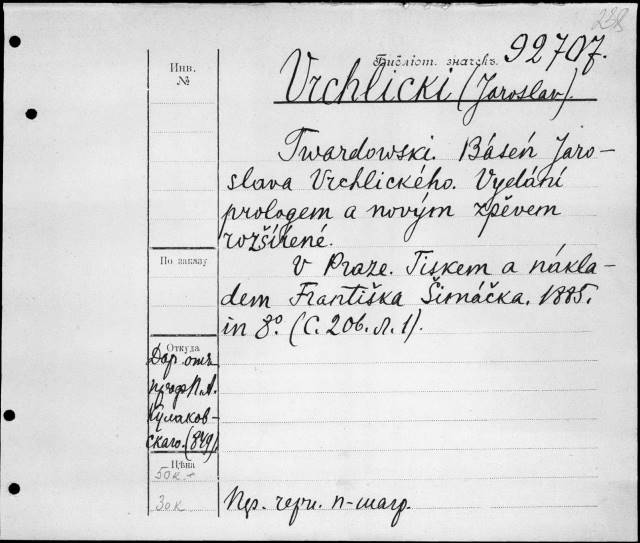 238
Инв.
№
Библіот. значекъ. 92707.
Vrchlicki (Jaroslav).
Twardowski. Báseń Jaro-
slava Vrchlického. Vydání
prologem a novým zpěvem
rozšířené.
По заказу
V Praze. Tiskem a nákla-
dem Františka Šimáčka. 1885.
in 8º. (С. 206. л. 1).
Откуда
Дар отъ
проф. П. А.
Кулаков-
скаго. (849).
Цѣна
50 к.
30 к